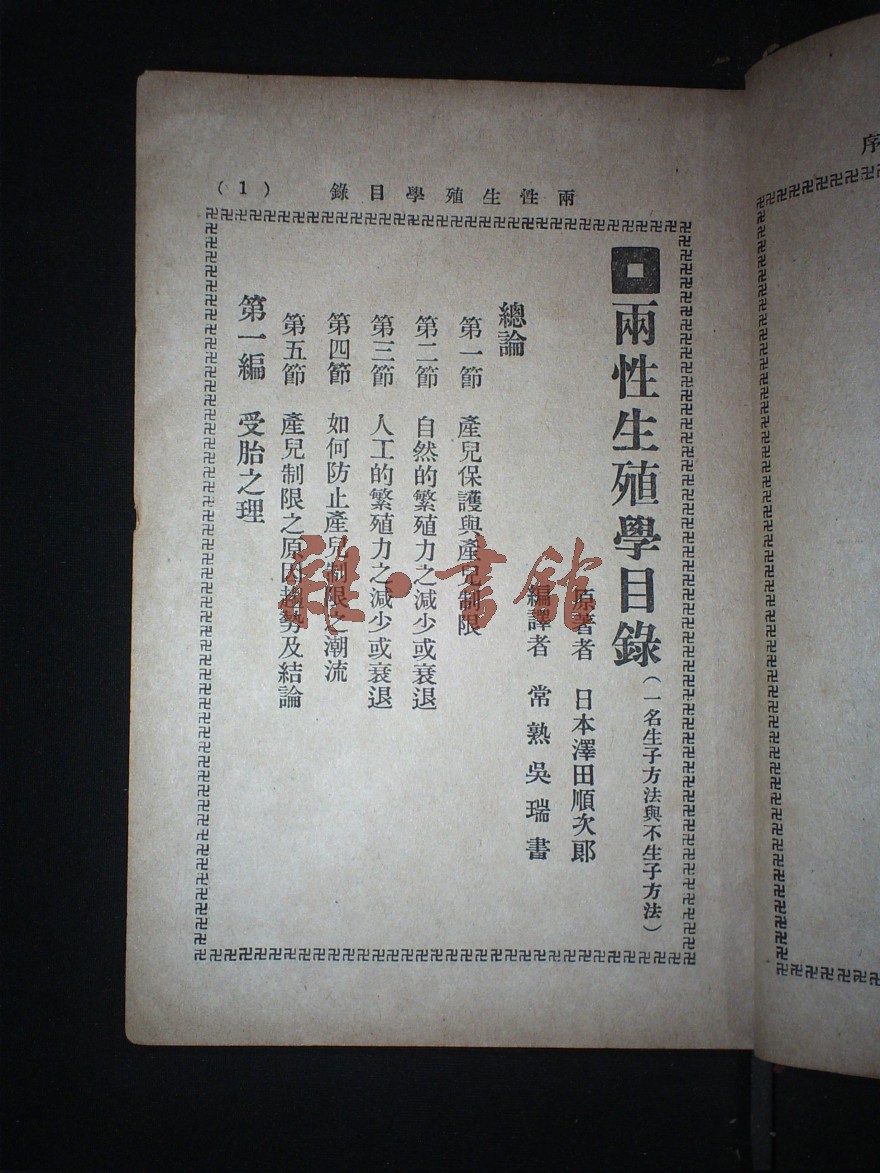 兩性生殖學目錄 (1)
兩性生殖學目錄(一名生子方法與不生子方法)
原著者 日本澤田順次郎
編譯者 常熟吳瑞書
總論
第一節 產兒保護與產兒制限
第二節 自然的繁殖力之減少或衰退
第三節 人工的繁殖力之減少或衰退
第四節 如何防止產兒制限之潮流
第五節 產兒制限之原因趨勢及結論
第一編 受胎之理
序